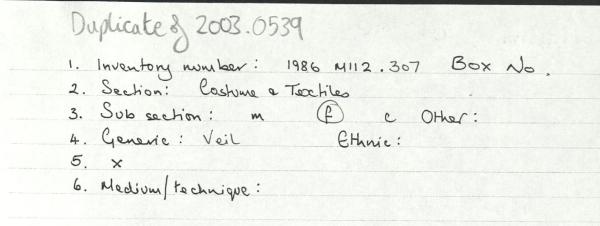 Duplicate of 2003.0539
1. Inventory number: 1986 M112.307 Box No.
2. Section: Costume & Textiles
3. Sub section: m f c Other:
4. Generic: Veil Ethnic:
5. x
6. Medium/technique: